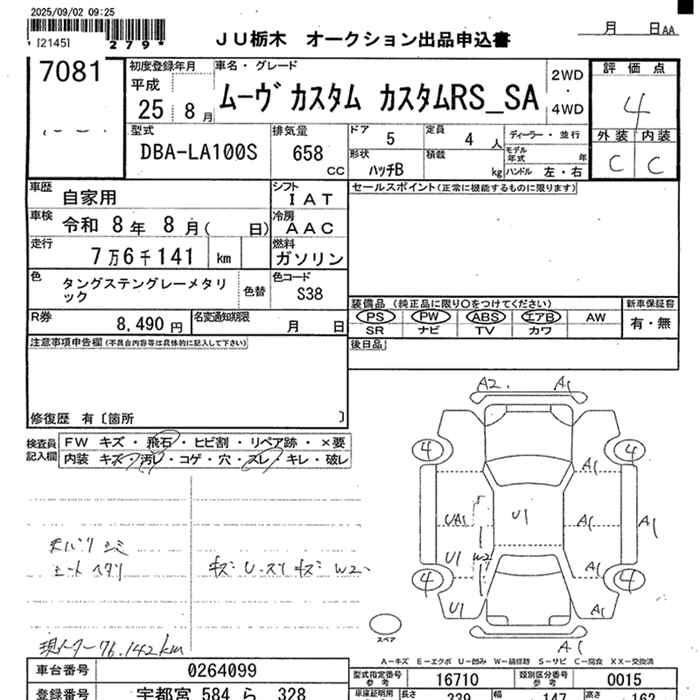 2025/09/02 09:25
*[2145] 279*
JU栃木 オークション出品申込書
月 日AA
7081
初度登録年月 平成 25 8月
車名・グレード ムーヴ カスタム カスタムRS_SA
2WD・4WD
評価点 4
外装 内装
C C
型式 DBA-LA100S
排気量 658 cc
ドア 5 定員 4 人
ディーラー・並行
モデル年式 年
形状 ハッチB 積載 kg
ハンドル 左・右
車歴 自家用
シフト IAT
セールスポイント(正常に機能するものに限ります)
車検 令和 8年 8月( 日)
冷房 AAC
走行 7万6千141 km
燃料 ガソリン
色 タングステングレーメタリック
色替
色コード S38
装備品 (純正品に限り○をつけてください)
新車保証書
PS PW ABS エアB AW
有・無
SR ナビ TV カワ
R券 8,490 円
名変通知期限 月 日
後日品
注意事項申告欄(不具合内容等は具体的に記入して下さい)
修復歴 有〔箇所 〕
検査員記入欄
FW キズ・飛石・ヒビ割・リペア跡・×要
内装 キズ・汚レ・コゲ・穴・スレ・キレ・破レ
天バリ シミ
シート ヘタリ
キズ U・スリ キズ W2
現メーター 76,142km
A2. A1
4 4
A1
UA1 U1 A1 A1
U1 W2 A1
4 4
U1 A1
A1
スペア
A=キズ E=エクボ U=凹み W=補修跡 S=サビ C=腐食 XX=交換済
車台番号 0264099
型式指定番号 参考 16710
類別区分番号 参考 0015
登録番号 宇都宮 584 ら 328
車庫証明用 長さ 339 幅 147 高さ 162